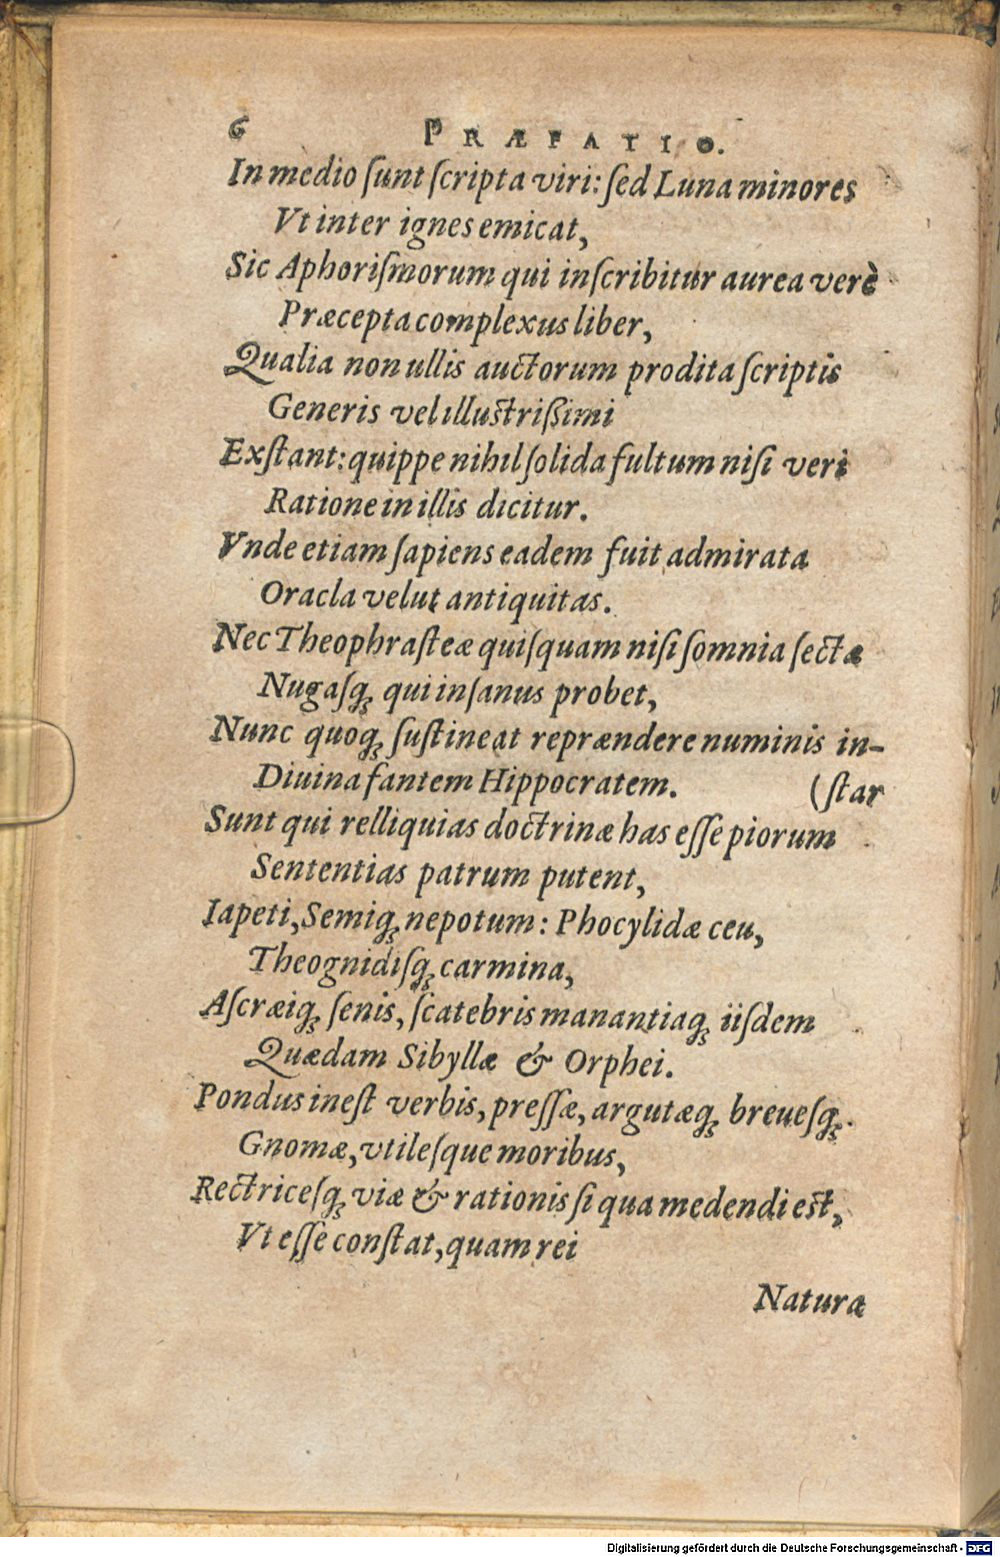 6 PRÆFATIO.
In medio ſunt ſcripta viri: ſed Luna minores
Vt inter ignes emicat,
Sic Aphoriſmorum qui inſcribitur aurea verè
Præcepta complexus liber,
Qualia non ullis auctorum prodita ſcriptis
Generis vel illuſtriſſimi
Exſtant: quippe nihil ſolida fultum niſi veri
Ratione in illis dicitur.
Vnde etiam ſapiens eadem fuit admirata
Oracla velut antiquitas.
Nec Theophraſteæ quiſquam niſi ſomnia ſectæ
Nugaſq́ꝫ qui inſanus probet,
Nunc quoqꝫ ſuſtineat reprændere numinis in-
Diuina fantem Hippocratem. (ſtar
Sunt qui relliquias doctrinæ has eſſe piorum
Sententias patrum putent,
Iapeti, Semiqꝫ nepotum: Phocylidæ ceu,
Theognidiſqꝫ carmina,
Aſcræiqꝫ ſenis, ſcatebris manantiaqꝫ iiſdem
Quædam Sibyllæ & Orphei.
Pondus ineſt verbis, preſſæ, argutæqꝫ breueſqꝫ.
Gnomæ, vtileſque moribus,
Rectriceſqꝫ viæ & rationis ſi qua medendi eſt,
Vt eſſe conſtat, quam rei
Naturæ
Digitalisierung gefördert durch die Deutsche Forschungsgemeinschaft - DFG